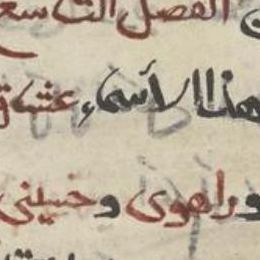 الفصل التاسع
هذا الأسماء عشاق
وراهوى وحسينى